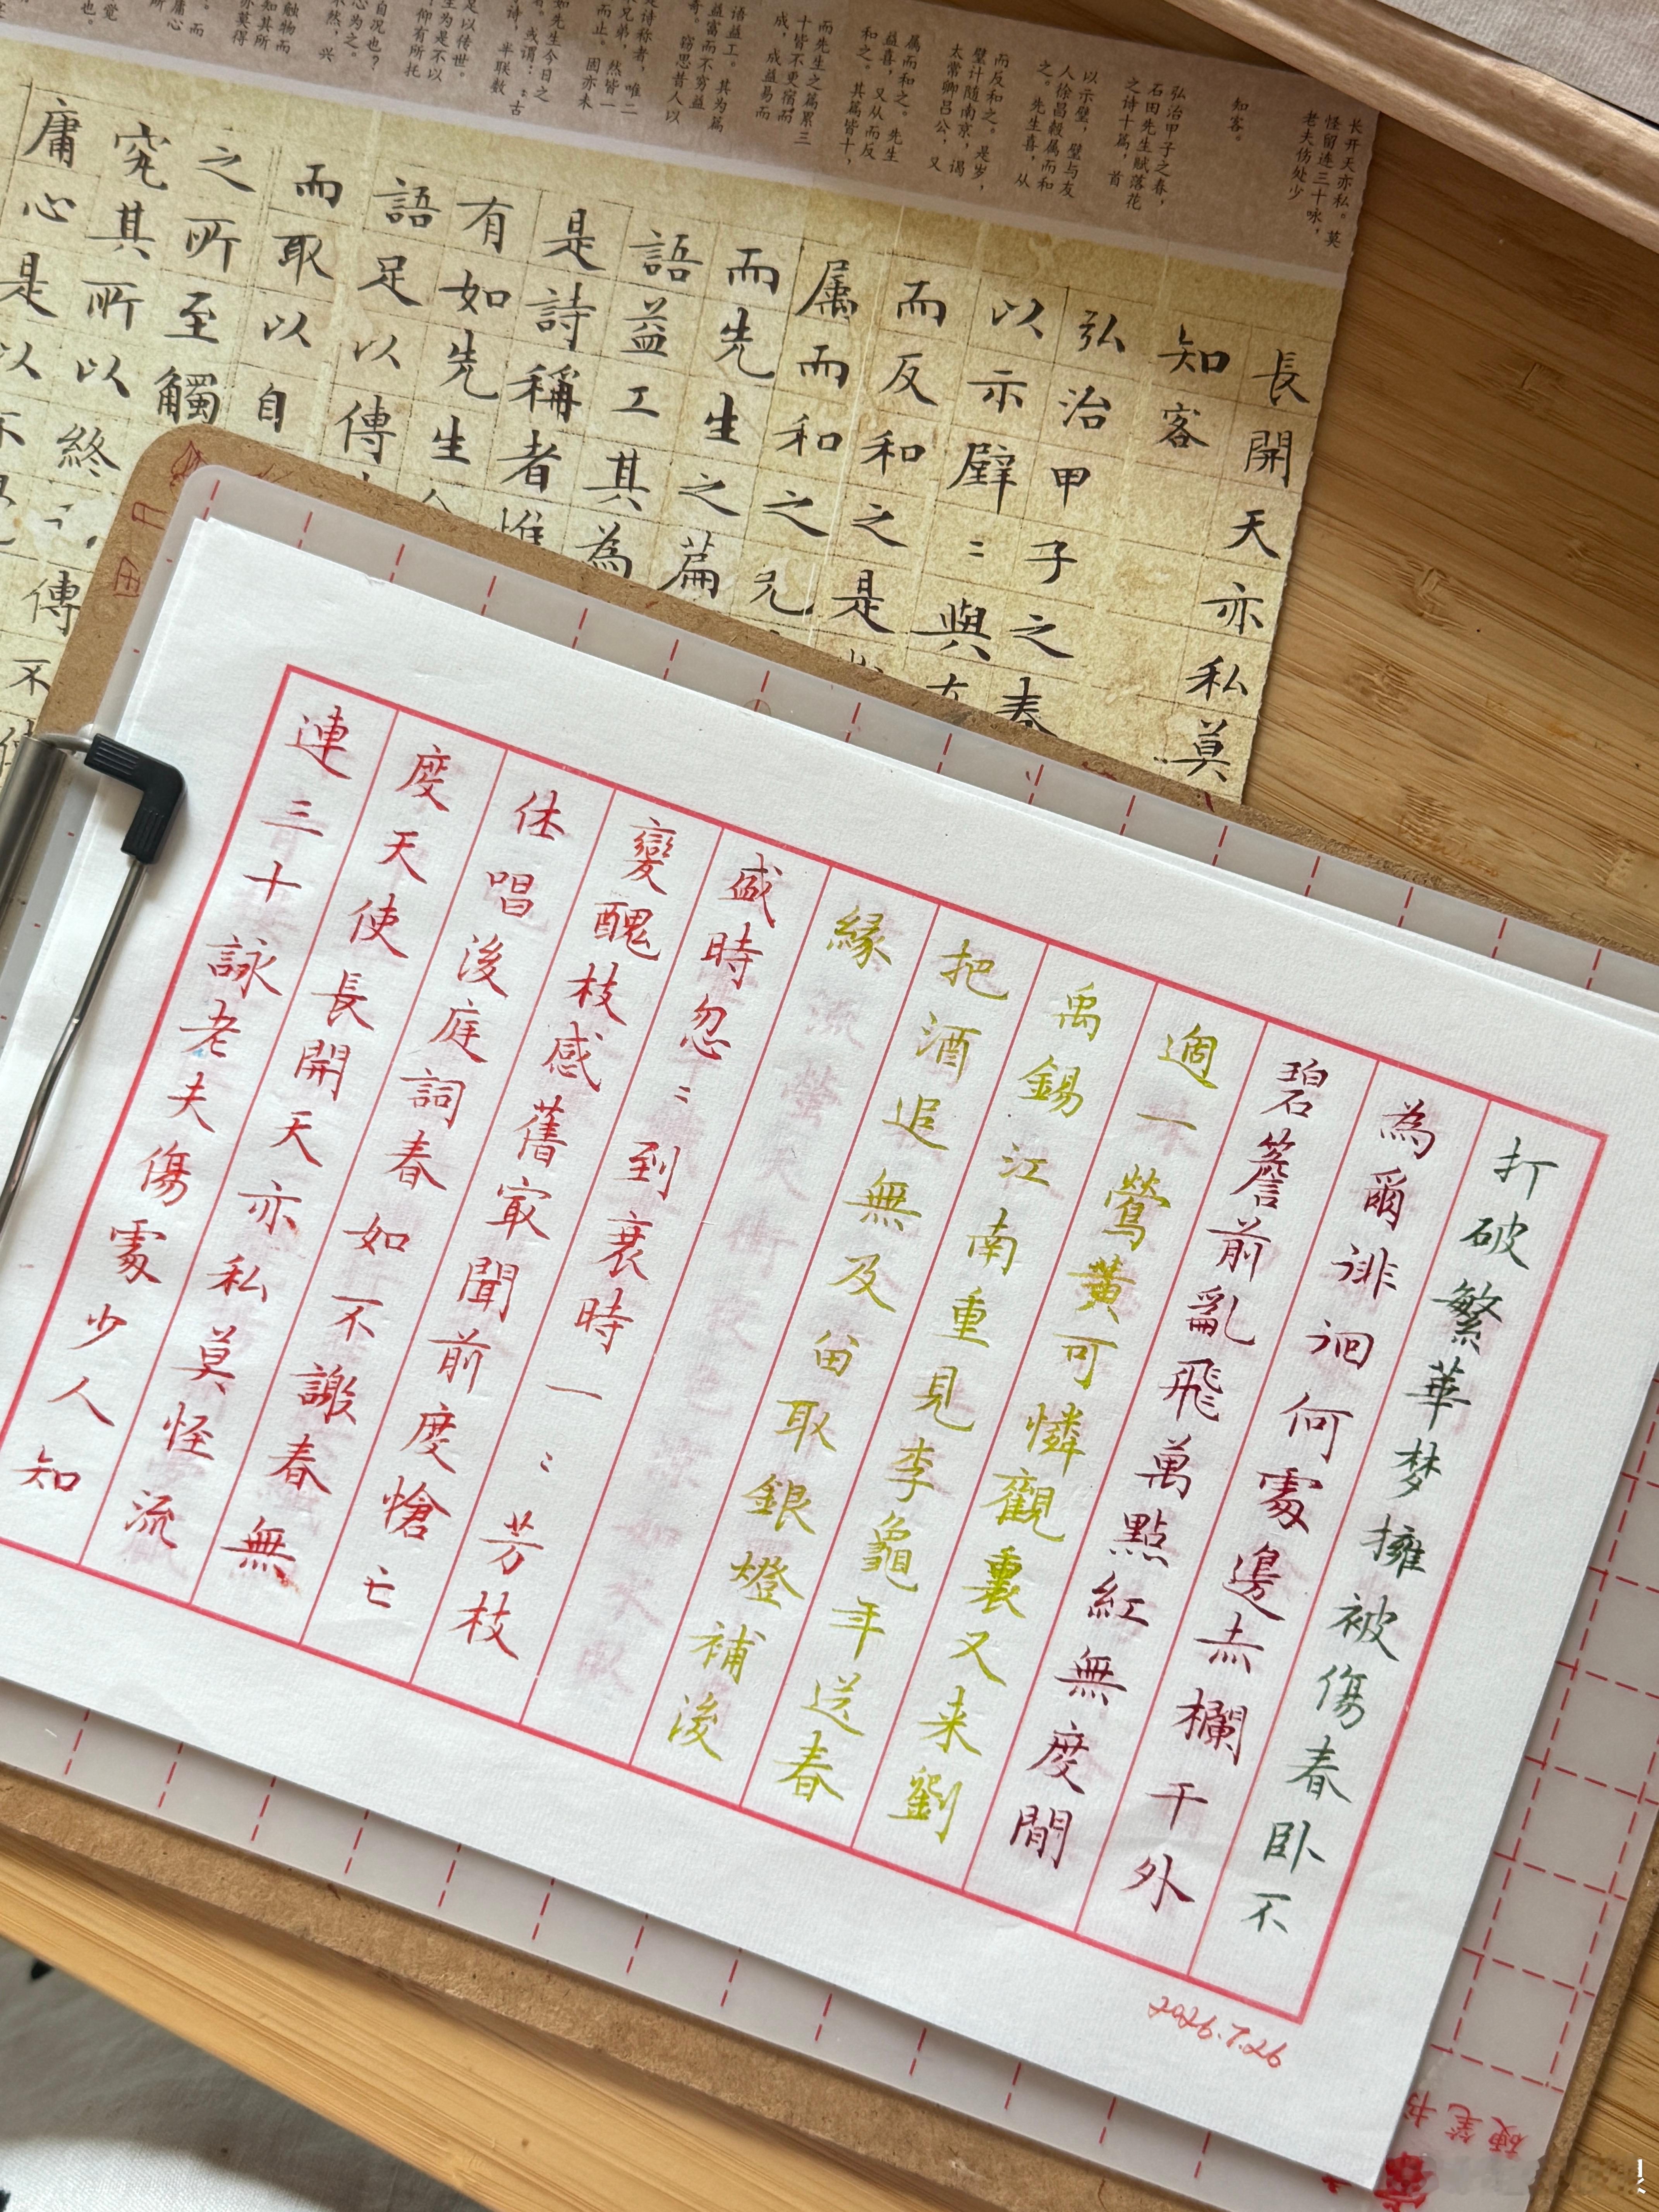 打破繁華梦擁被傷春卧不
為爾徘徊何處邊赤欄干外
碧簷前亂飛萬點紅無度閒
過一鶯黃可憐觀裏又来劉
禹錫江南重見李龜年送春
把酒追無及留取銀燈補後
緣
盛時忽〻到衰時一〻芳枝
變醜枝感舊㝡聞前度愴亡
休唱後庭詞春如不謝春無
度天使長開天亦私莫怪流
連三十詠老夫傷處少人知
2026.7.26
長開天亦私莫
知客
弘治甲子之春
以示璧〻與友
而反和之是
属而和之凡
而先生之篇
語益工其為
是詩稱者惟
有如先生
語足以傳
而取以自
之所至觸
究其所以終
庸心是以
傳
不
长开天亦私。莫
怪留连三十咏，
老夫伤处少
知客。
弘治甲子之春，
石田先生赋落花
之诗十篇，首
以示璧，璧与友
人徐昌榖属而和
之。先生喜，从
而反和之。是岁，
璧计随南京，谒
太常卿吕公，又
属而和之。先生
益喜，又从而反
和之。其篇皆十，
而先生之篇累三
十皆不更宿而
成，成益易而
语益工。其为篇
益富而不穷益
奇。窃思昔人以
是诗称者，唯二
宋兄弟，然皆一
而止。固亦未
如先生今日之
者。或谓：古
诗，半联数
足以传世。
硬笔书